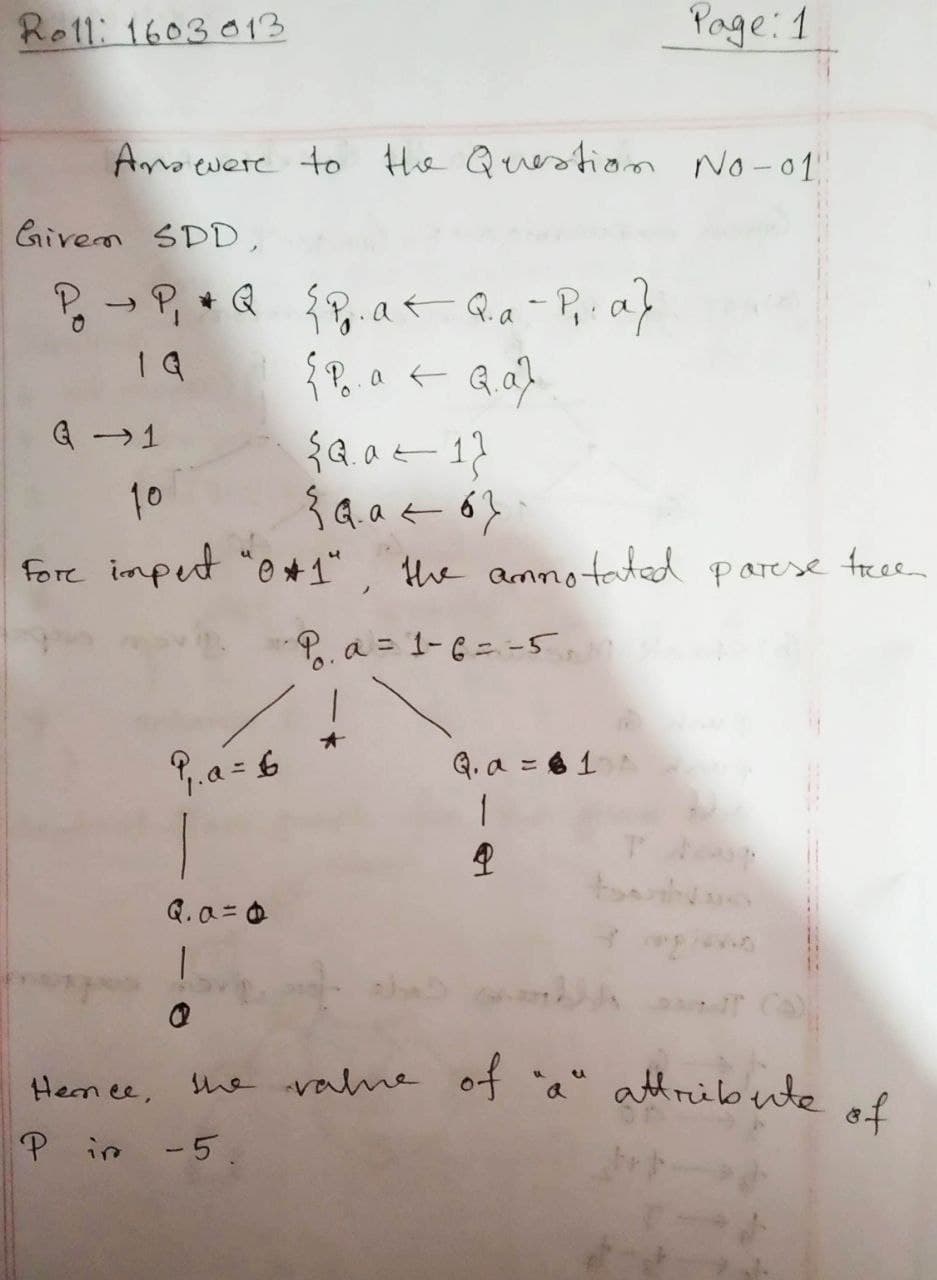 Roll: 1603013
Page: 1
Answere to the Question No-01
Given SDD,
P₀ → P₁ * Q {P₀.a ← Q.a - P₁.a}
| Q {P₀.a ← Q.a}
Q → 1 {Q.a ← 1}
| 0 {Q.a ← 6}
Fore input "0*1", the annotated parse tree
P₀.a = 1-6 = -5
*
P₁.a = 6 Q.a = 1
1
Q.a = 0
0
Hence, the value of "a" attribute of
P is -5.